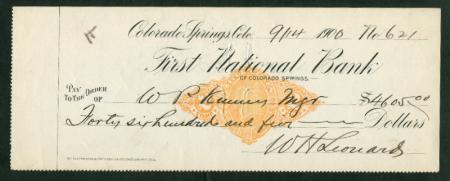 Colorado Springs, Colo. 9/14 1900 No 621
First National Bank
OF COLORADO SPRINGS.
PAY TO THE ORDER OF W P Kinney Mgr $4605.00
Forty six hundred and five Dollars
W H Leonard